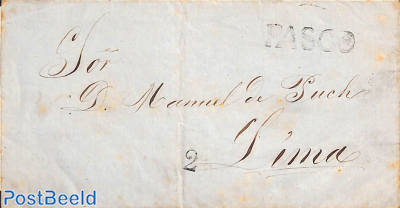 PASCO
Sōr
D. Manuel de Puch
2 Lima
PostBeeld